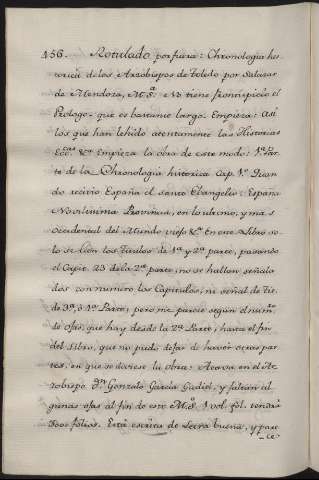 156. Rotulado por fuera: Chronologia his
torica de los Arzobispos de Toledo, por Salazar
de Mendoza, M.S. No tiene frontispicio el
Prologo, que es bastante largo. Empieza: Asi
los que han lehido atentamente las Historias
Ecc.as &.a Empieza la obra de este modo: 1.a Par
te de la Chronologia historica Cap. 1.o Quan
do recivio España el santo Evangelio: España
Novilisima Provincia, en lo ultimo, y mas
Occidental del Mundo viejo &.a En este Libro so
lo se leen los titulos de 1.a y 2.a parte, pasando
el Capit. 23 de la 2.a parte, no se hallan señala
dos con numero los Capitulos, ni señal de
3.a, ó 4.a Parte; pero me parece segun el num.ro
de ojas, que hay desde la 2.a Parte, hasta el fin
del Libro, que no pudo dejar de haver otras par
tes, en que se diviese la Obra: Acava en el Ar
zobispo D.n Gonzalo Garcia Gudiel, y faltan al
gunas ojas al fin de este M.S. 1 vol. fol. tendra
folios. Está escrito de Letra buena, y pare
ce